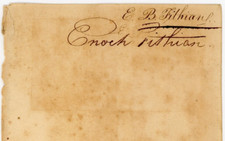 E. B. Fithian
Enoch Fithian